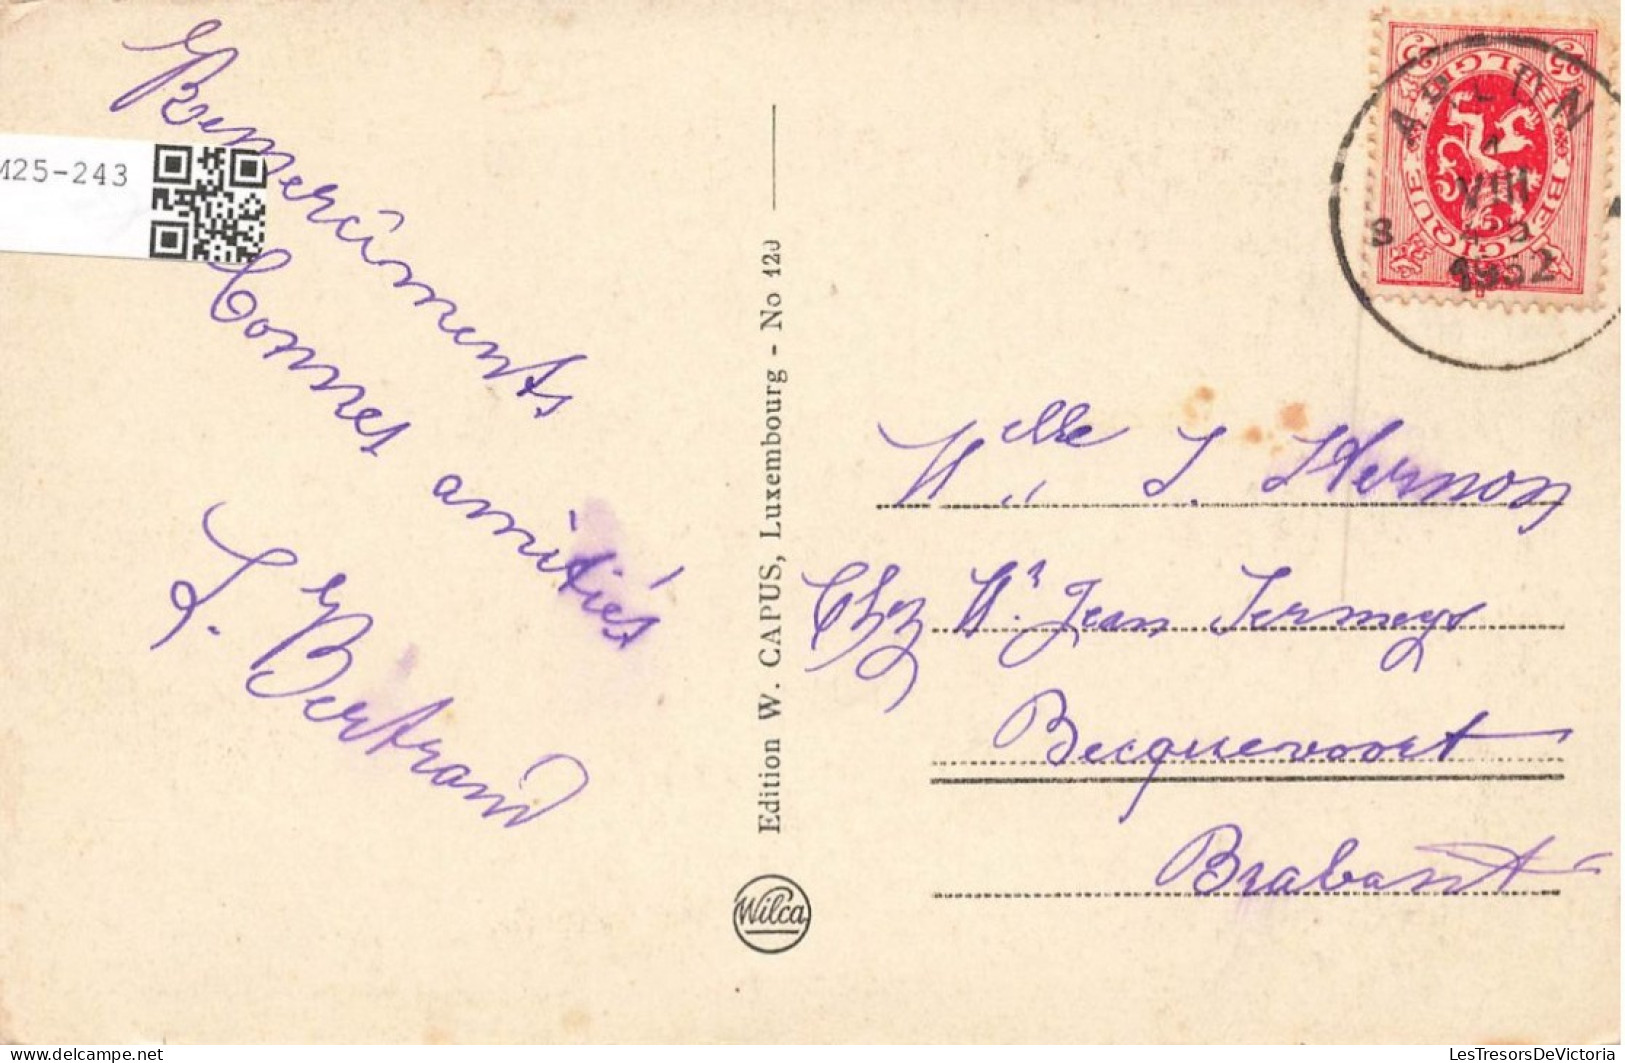 M25-243
Remerciments
Bonnes amitiés
L. Bertrand
Edition W. CAPUS, Luxembourg - No 120
Wilca
BELGIE BELGIQUE
25 25
ARLON
1
VIII
1932
Melle J. Hernon
Chez Mr. Jean
Becquevoort
Brabant
LesTresorsDeVictoria
www.delcampe.net